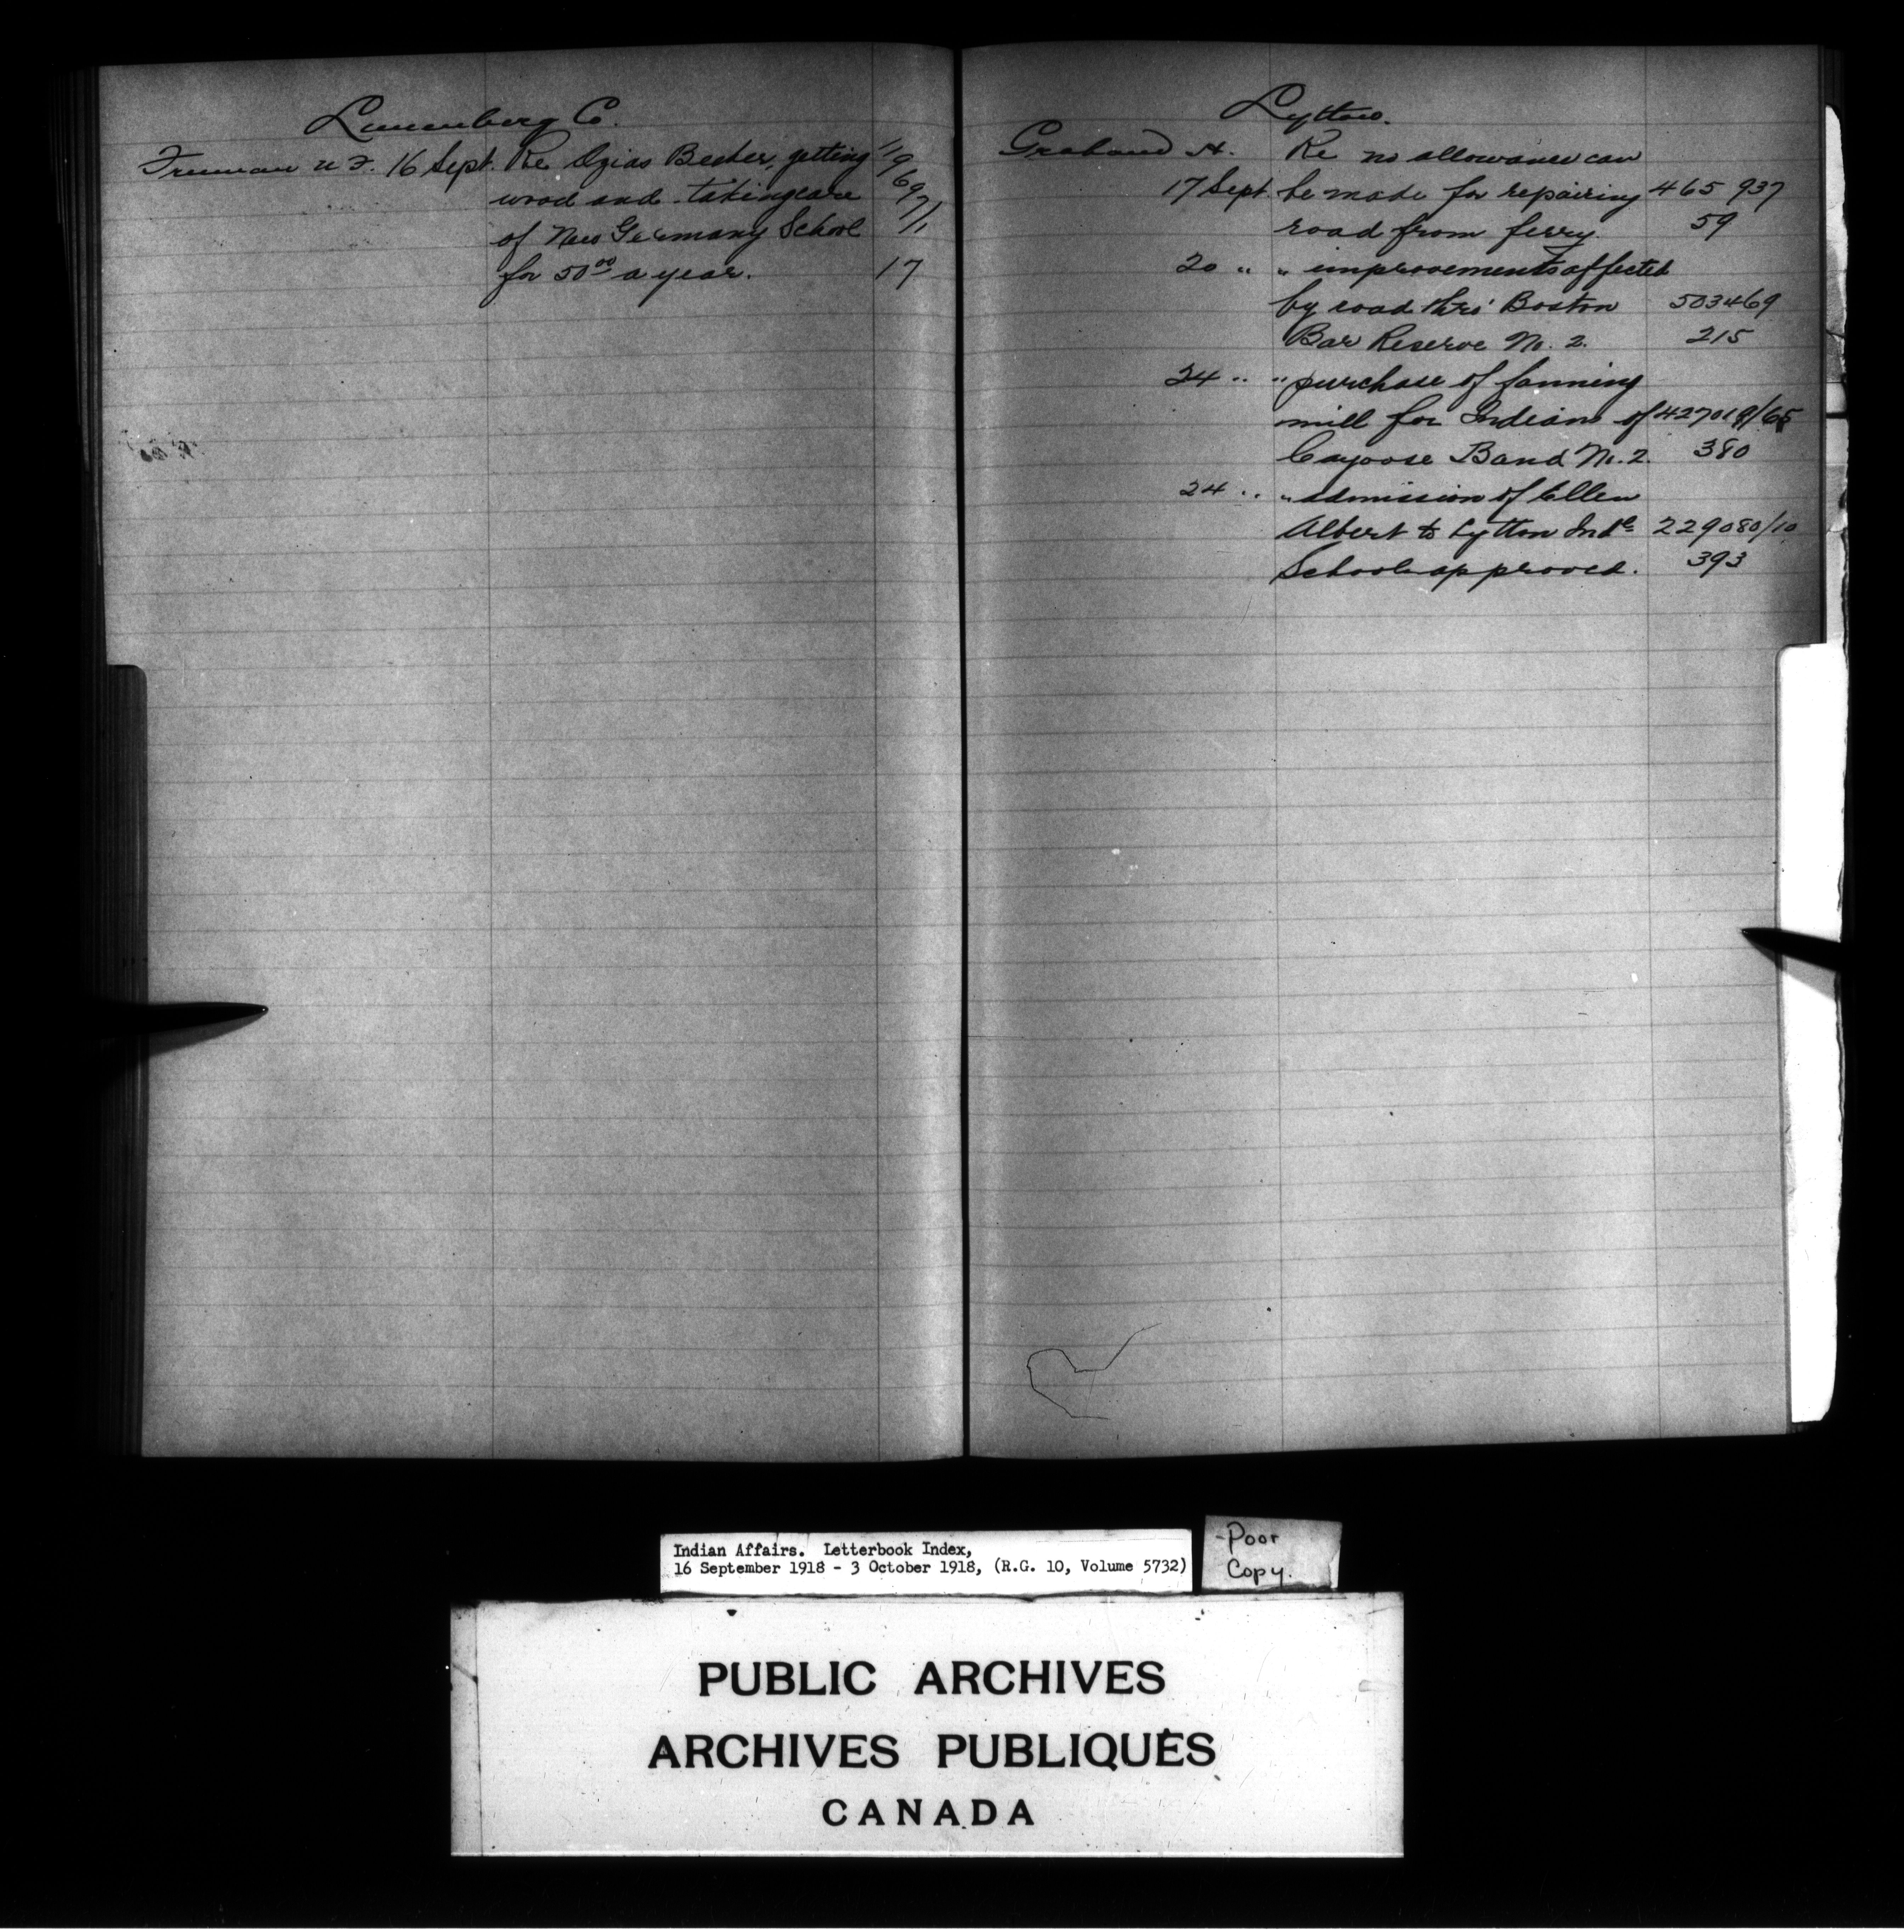 Lunenberg Co.
Freeman N. F. 16 Sept. Re Ozias Becker, getting
wood and taking care
of New Germany School
for 50⁰⁰ a year. 17
Lytton.
Graham H. Re no allowance can
17 Sept. be made for repairing 465 937
road from ferry. 59
20 " " improvements affected
by road thro' Boston 503469
Bar Reserve No. 2. 215
24 " " purchase of fanning
mill for Indians of 427019/65
Cayoose Band No. 2. 380
24 " " admission of Ellen
Albert to Lytton Indˡ 229080/10
School approved. 393
Indian Affairs. Letterbook Index,
16 September 1918 - 3 October 1918, (R.G. 10, Volume 5732)
-Poor
Copy.
PUBLIC ARCHIVES
ARCHIVES PUBLIQUES
CANADA